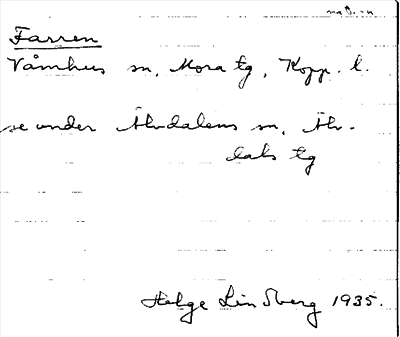 Farren
Våmhus sn, Mora tg, Kopp. l.
se under Älvdalens sn, Älv-
dals tg
Helge Lindberg 1935.